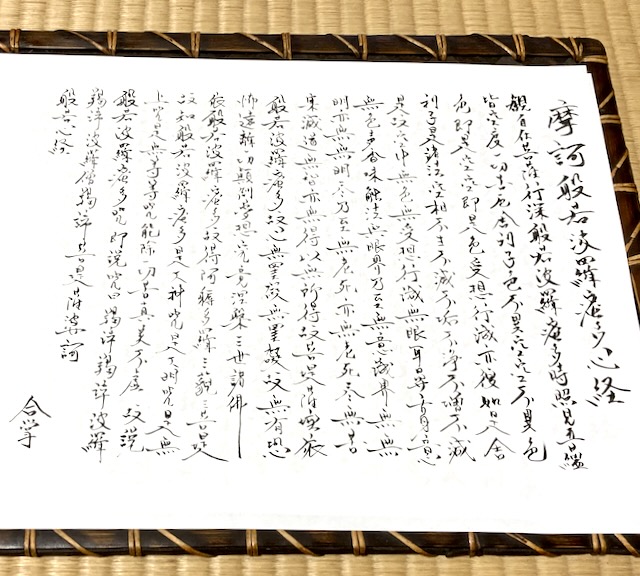 摩訶般若波羅蜜多心経
観自在菩薩行深般若波羅蜜多時照見五蘊
皆空度一切苦厄舎利子色不異空空不異色
色即是空空即是色受想行識亦復如是舎
利子是諸法空相不生不滅不垢不浄不増不減
是故空中無色無受想行識無眼耳鼻舌身意
無色声香味触法無眼界乃至無意識界無無
明亦無無明尽乃至無老死亦無老死尽無苦
集滅道無智亦無得以無所得故菩提薩埵依
般若波羅蜜多故心無罣礙無罣礙故無有恐
怖遠離一切顛倒夢想究竟涅槃三世諸佛
依般若波羅蜜多故得阿耨多羅三藐三菩提
故知般若波羅蜜多是大神咒是大明咒是無
上咒是無等等咒能除一切苦真実不虚故説
般若波羅蜜多咒即説咒曰羯諦羯諦波羅
羯諦波羅僧羯諦菩提薩婆訶
般若心経
合掌